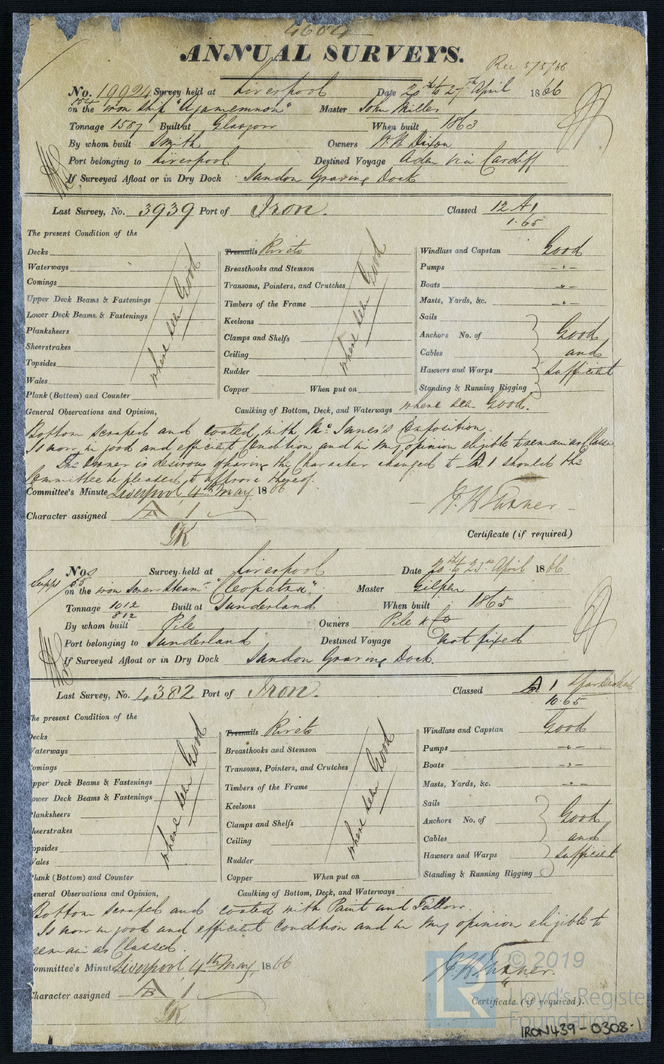 4604
ANNUAL SURVEYS.
Rec 5/5/66
No. 19924 Survey held at Liverpool Date 20th to 27th April 1866
on the iron ship "Agamemnon" Master John Miller
Tonnage 1557 Built at Glasgow When built 1863
By whom built Smith Owners W. H. Dixon
Port belonging to Liverpool Destined Voyage Aden via Cardiff
If Surveyed Afloat or in Dry Dock Sandon Graving Dock
Last Survey, No. 3939 Port of Iron. Classed 12 A1
1.65
The present Condition of the
Decks
Waterways
Comings
Upper Deck Beams & Fastenings
Lower Deck Beams & Fastenings
Planksheers
Sheerstrakes
Topsides
Wales
Plank (Bottom) and Counter
where seen Good
Treenails Rivets
Breasthooks and Stemson
Transoms, Pointers, and Crutches
Timbers of the Frame
Keelsons
Clamps and Shelfs
Ceiling
Rudder
Copper When put on
where seen Good
Windlass and Capstan Good
Pumps -"-
Boats -"-
Masts, Yards, &c. -"-
Sails
Anchors No. of Good
Cables and
Hawsers and Warps Sufficient
Standing & Running Rigging
General Observations and Opinion, Caulking of Bottom, Deck, and Waterways where seen Good.
Bottom scraped and coated with Composition.
Is now in good and efficient Condition, and in my opinion eligible to remain as Classed
The Owner is desirous of having the Character changed to A 1 should the
Committee be pleased to approve thereof.
Committee's Minute Liverpool 4th May 1866
Character assigned A 1
J. H. Turner
Certificate (if required)
No. Survey held at Liverpool Date 20th to 25th April 1866
on the iron Screw Steamr "Cleopatra" Master Gilpin
Tonnage 1012 Built at Sunderland When built 1865
812
By whom built Pile Owners Pile & Co
Port belonging to Sunderland Destined Voyage Not fixed
If Surveyed Afloat or in Dry Dock Sandon Graving Dock.
Last Survey, No. 4382 Port of Iron. Classed A 1
10.65
he present Condition of the
ecks
Vaterways
omings
pper Deck Beams & Fastenings
ower Deck Beams & Fastenings
lanksheers
heerstrakes
opsides
Vales
lank (Bottom) and Counter
where seen Good
Treenails Rivets
Breasthooks and Stemson
Transoms, Pointers, and Crutches
Timbers of the Frame
Keelsons
Clamps and Shelfs
Ceiling
Rudder
Copper When put on
where seen Good
Windlass and Capstan Good
Pumps -"-
Boats -"-
Masts, Yards, &c. -"-
Sails
Anchors No. of Good
Cables and
Hawsers and Warps Sufficient
Standing & Running Rigging
eneral Observations and Opinion, Caulking of Bottom, Deck, and Waterways
Bottom scraped and coated with Paint and Tallow.
Is now in good and efficient condition and in my opinion eligible to
remain as Classed.
ommittee's Minute Liverpool 4th May 1866
haracter assigned A 1
J. H. Turner.
Certificate (if required).
LR © 2019
Lloyd's Register
Foundation
IRON439-0308-1